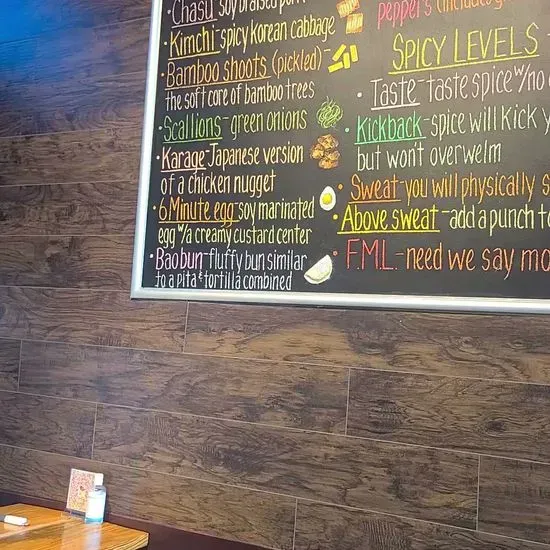 · Chasu-soy braised pork
· Kimchi-spicy korean cabbage
· Bamboo shoots (pickled)-
the soft core of bamboo trees
· Scallions-green onions
· Karage-Japanese version
of a chicken nugget
· 6 Minute egg-soy marinated
egg w/a creamy custard center
· Bao bun-fluffy bun similar
to a pita & tortilla combined
peppers (includes
SPICY LEVELS
· Taste-taste spice w/no
· Kickback-spice will kick y
but won't overwelm
· Sweat-you will physically s
· Above sweat-add a punch to
· F.M.L.-need we say mo